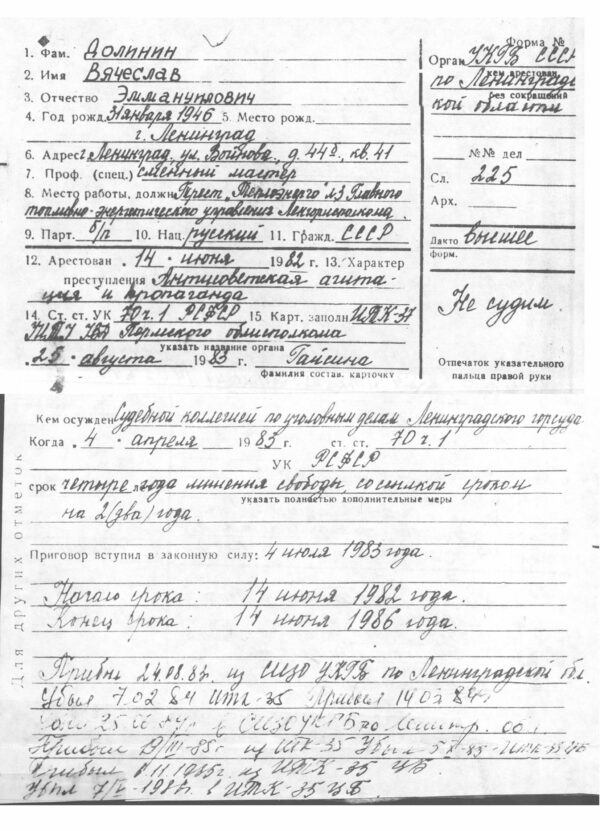 Форма №
1. Фам. Долинин
2. Имя Вячеслав
3. Отчество Эммануилович
4. Год рожд. 31 января 1946 5. Место рожд.
г. Ленинград
6. Адрес г. Ленинград, ул. Войнова, д. 44, кв. 41
7. Проф. (спец.) сменный мастер
8. Место работы, должн. Трест „Теплоэнерго" №3 Главного
топливно-энергетического управления Ленгорисполкома.
9. Парт. б/п 10. Нац. русский 11. Гражд. СССР
12. Арестован „14" июня 1982 г. 13. Характер
преступления Антисоветская агита-
ция и пропаганда
14. Ст. ст. УК 70 ч. 1 РСФСР 15. Карт. заполн. ИТК-37
УВД Пермского облисполкома
указать название органа
„25" августа 1983 г. Гайсина
фамилия состав. карточку
Орган УКГБ СССР
кем арестован
по Ленинград-
без сокращений
ской области
№№ дел
Сл. 225
Арх.
Дакто высшее
форм.
Не судим.
Отпечаток указательного
пальца правой руки
Для других отметок
Кем осужден Судебной коллегией по уголовным делам Ленинградского горсуда
Когда „4" апреля 1983 г. ст. ст. 70 ч. 1
УК РСФСР
срок четыре года лишения свободы, со ссылкой сроком
указать полностью дополнительные меры
на 2 (два) года.
Приговор вступил в законную силу: 4 июля 1983 года.
Начало срока: 14 июня 1982 года.
Конец срока: 14 июня 1986 года.
Прибыл 24.08.83г. из СИЗО УКГБ по Ленинградской обл.
Убыл 7 02 84 ИТК-35 Прибыл 14 03 84г
25 в СИЗО УКГБ по Ленингр. обл.
Прибыл из ИТК-35 Убыл ИТК-35 ЦБ
Прибыл 11.1985г. из ИТК-35 ЦБ.
Убыл в ИТК-35 ЦБ